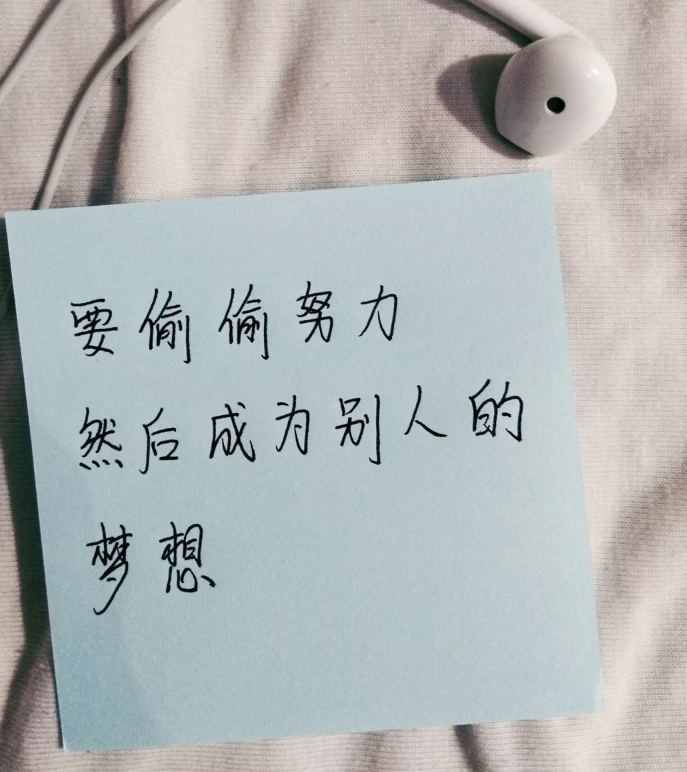 要偷偷努力
然后成为别人的
梦想